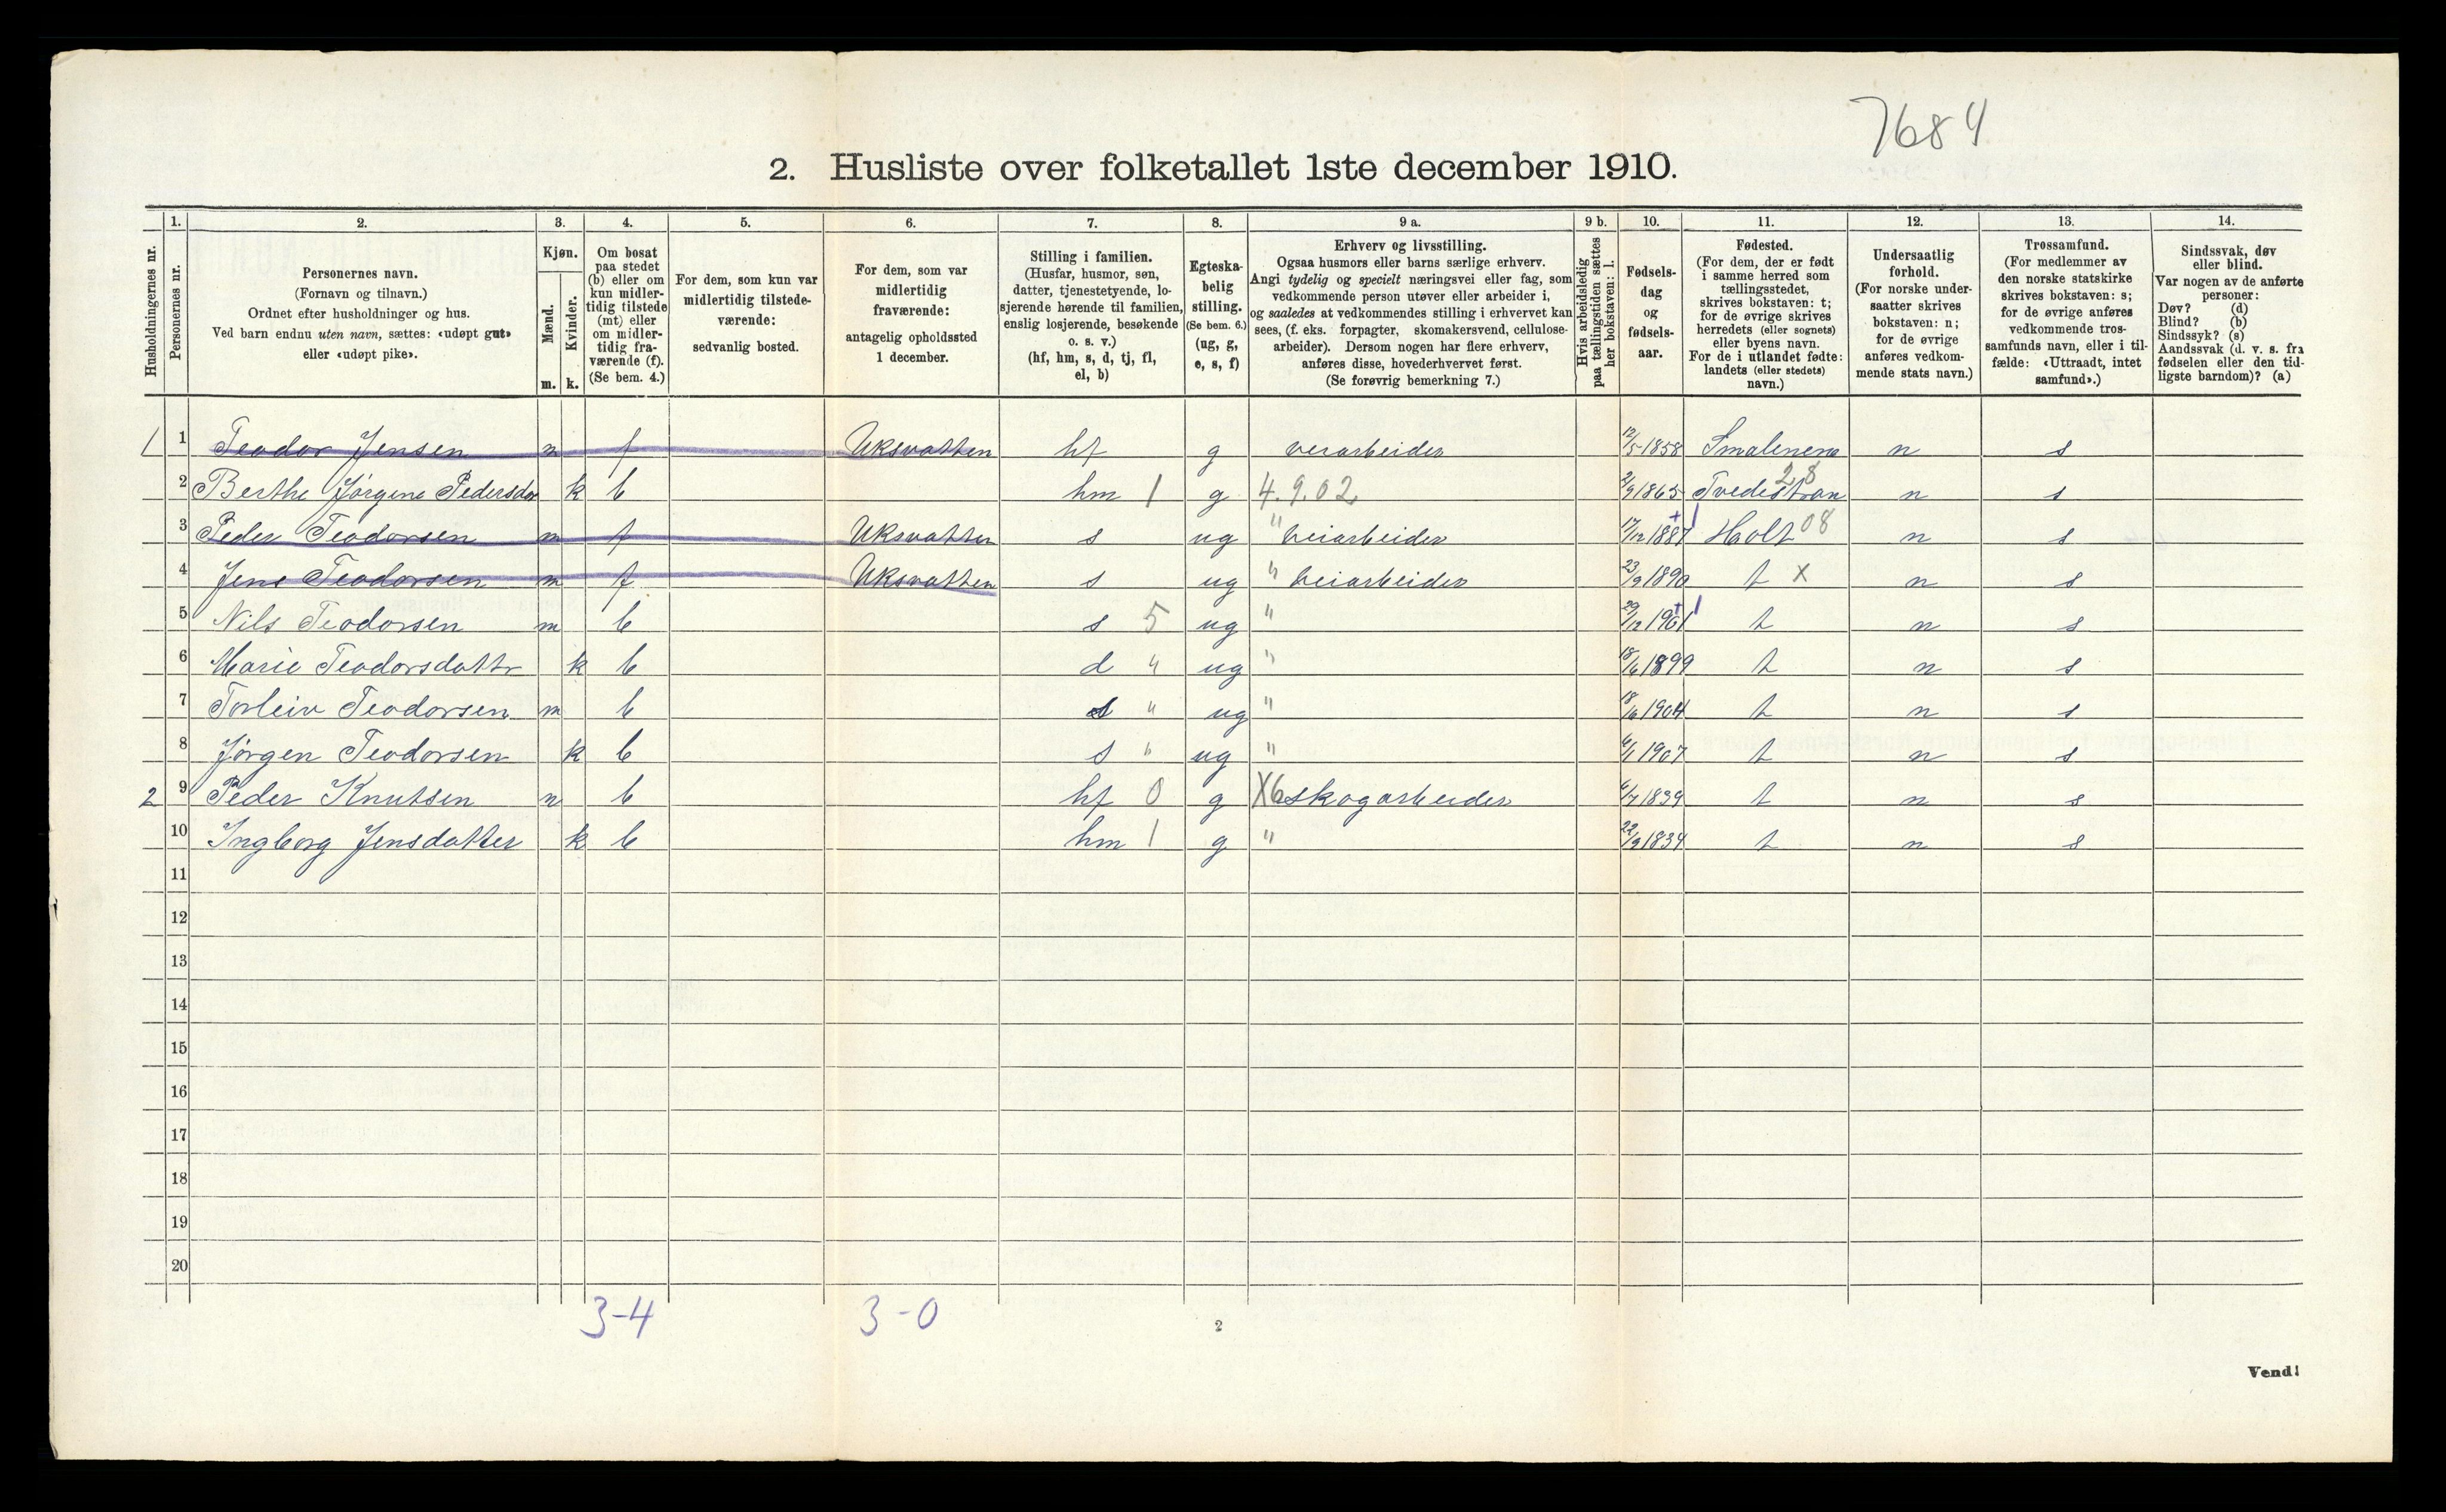 7684
2. Husliste over folketallet 1ste december 1910.
Husholdningernes nr.
1.
Personernes nr.
2.
Personernes navn.
(Fornavn og tilnavn.)
Ordnet efter husholdninger og hus.
Ved barn endnu uten navn, sættes: «udøpt gut»
eller «udøpt pike».
3.
Kjøn.
Mænd.
m.
Kvinder.
k.
4.
Om bosat
paa stedet
(b) eller om
kun midler-
tidig tilstede
(mt) eller
om midler-
tidig fra-
værende (f).
(Se bem. 4.)
5.
For dem, som kun var
midlertidig tilstede-
værende:
sedvanlig bosted.
6.
For dem, som var
midlertidig
fraværende:
antagelig opholdssted
1 december.
7.
Stilling i familien.
(Husfar, husmor, søn,
datter, tjenestetyende, lo-
sjerende hørende til familien,
enslig losjerende, besøkende
o. s. v.)
(hf, hm, s, d, tj, fl,
el, b)
8.
Egteska-
belig
stilling.
(Se bem. 6.)
(ug, g,
e, s, f)
9 a.
Erhverv og livsstilling.
Ogsaa husmors eller barns særlige erhverv.
Angi tydelig og specielt næringsvei eller fag, som
vedkommende person utøver eller arbeider i,
og saaledes at vedkommendes stilling i erhvervet kan
sees, (f. eks. forpagter, skomakersvend, cellulose-
arbeider). Dersom nogen har flere erhverv,
anføres disse, hovederhvervet først.
(Se forøvrig bemerkning 7.)
9 b.
Hvis arbeidsledig
paa tællingstiden sættes
her bokstaven: l.
10.
Fødsels-
dag
og
fødsels-
aar.
11.
Fødested.
(For dem, der er født
i samme herred som
tællingsstedet,
skrives bokstaven: t;
for de øvrige skrives
herredets (eller sognets)
eller byens navn.
For de i utlandet fødte:
landets (eller stedets)
navn.)
12.
Undersaatlig
forhold.
(For norske under-
saatter skrives
bokstaven: n;
for de øvrige
anføres vedkom-
mende stats navn.)
13.
Trossamfund.
(For medlemmer av
den norske statskirke
skrives bokstaven: s;
for de øvrige anføres
vedkommende tros-
samfunds navn, eller i til-
fælde: «Uttraadt, intet
samfund».)
14.
Sindssvak, døv
eller blind.
Var nogen av de anførte
personer:
Døv? (d)
Blind? (b)
Sindssyk? (s)
Aandssvak (d. v. s. fra
fødselen eller den tid-
ligste barndom)? (a)
1 1 Teodor Jensen m f Uksvatten hf g veiarbeider 12/5 1858 Smalenene n s
2 Berthe Jørgine Pedersdor k b hm 1 g 4.9.02 2/9 1865 Tvedestran 28 n s
3 Peder Teodorsen m f Uksvatten s ug " veiarbeider 17/12 1887 Holt 08 n s
4 Jens Teodorsen m f Uksvatten s ug " veiarbeider 23/9 1890 t x n s
5 Nils Teodorsen m b s 5 ug " 29/12 1901 t n s
6 Marie Teodorsdattr k b d " ug " 18/6 1899 t n s
7 Torleiv Teodorsen m b s " ug " 18/6 1904 t n s
8 Jørgen Teodorsen k b s " ug " 6/1 1907 t n s
2 9 Peder Knutsen m b hf 0 g X6 skogarbeider 6/7 1839 t n s
10 Ingborg Jensdatter k b hm 1 g " 22/9 1834 t n s
11
12
13
14
15
16
17
18
19
20
3-4 3-0
2
Vend!